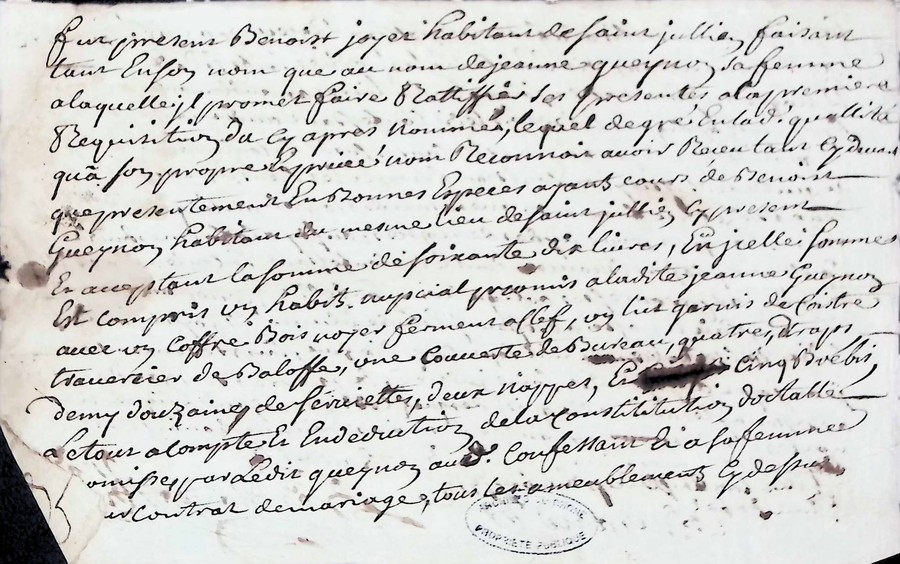 fut present Benoist joyet habitant de saint jullien faisant
tant en son nom que au nom de jeanne gueynon sa femme
a laquelle jl promet faire Rattiffier ses presentes a la premiere
Requisition du Cy apres nommé, lequel de gré en ladt quallité
qua son propre Et privée nom Reconnoit avoir Receu tant Cy devant
que presentement En Bonnes Especes ayant cours de Benoist
Gueynon habitant du mesme lieu de saint jullien Cy present
Et acceptant la somme de soixante dix livres, En jcelle somme
Est compris un habit nupcial promis a ladite jeanne Gueynon
avec un Coffre Bois noyer fermant a Clef, un lict garnis de Coitre
traversier de Baloffe, une Couverte de Bureau, quatres draps
demy douzaine de serviettes, deux nappes, Et cinq Brebis,
Le tout a compte Et En deduction de la Constitution doctalle
promise par Ledit gueynon aud. Confessant Et a sa femme
Contrat de mariage, tous les ameublements Cy dessus
ARCHIVES DU RHONE
PROPRIETE PUBLIQUE